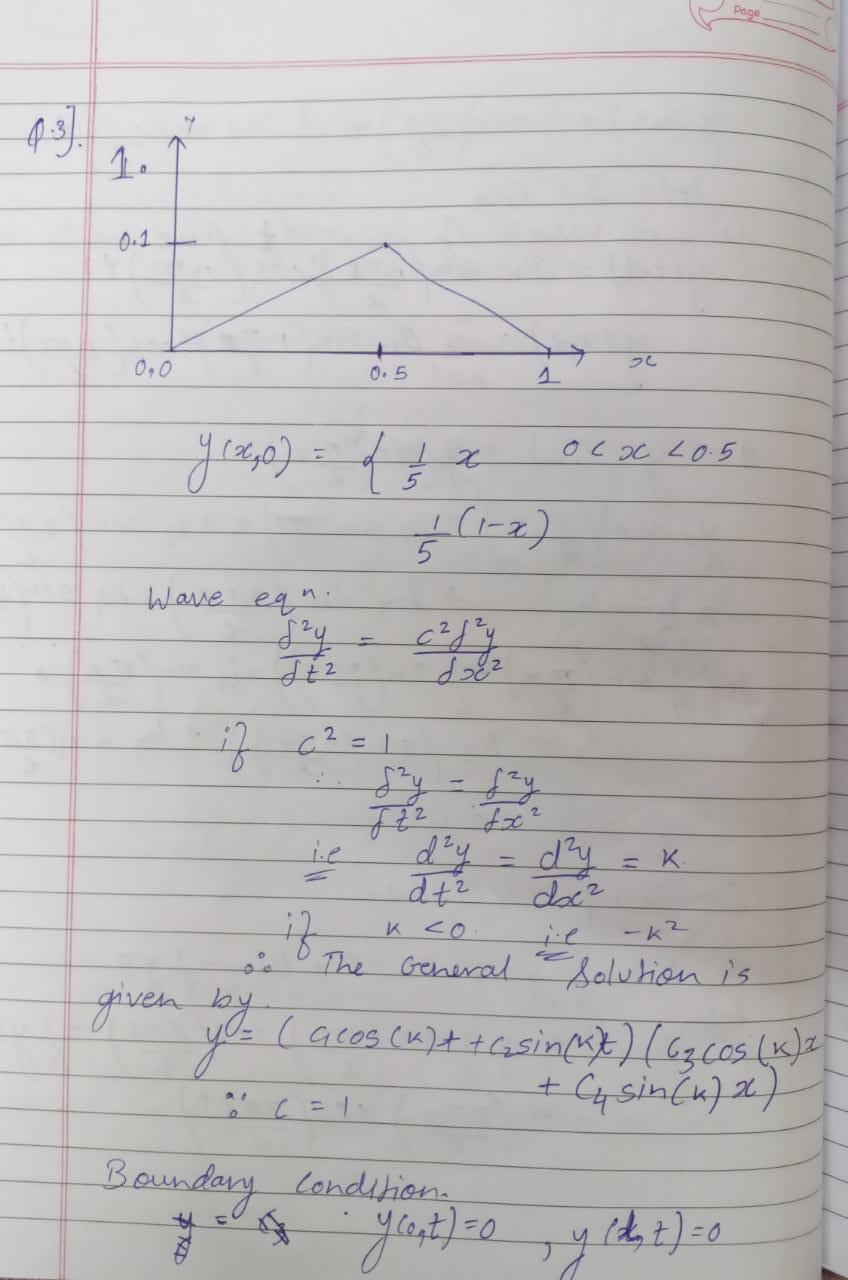 Page
Q.3].
y
1.
0.1
0,0 0.5 1 x
y(x,0) = { 1/5 x 0 < x < 0.5
1/5 (1-x)
Wave eqn.
δ²y/δt² = c²δ²y/δx²
if c² = 1
∴ δ²y/δt² = δ²y/δx²
i.e d²y/dt² = d²y/dx² = K
if K < 0. i.e -K²
∴ The General Solution is
given by.
y = (C1cos(K)t + C2sin(K)t) (C3cos(K)x
+ C4 sin(K)x)
∵ C = 1
Boundary Condition.
y(0,t)=0 , y(l,t)=0